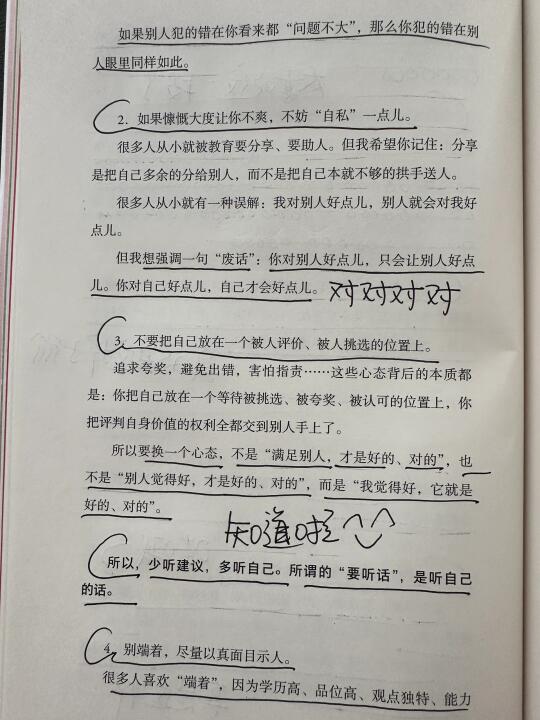 如果别人犯的错在你看来都“问题不大”，那么你犯的错在别
人眼里同样如此。
2. 如果慷慨大度让你不爽，不妨“自私”一点儿。
很多人从小就被教育要分享、要助人。但我希望你记住：分享
是把自己多余的分给别人，而不是把自己本就不够的拱手送人。
很多人从小就有一种误解：我对别人好点儿，别人就会对我好
点儿。
但我想强调一句“废话”：你对别人好点儿，只会让别人好点
儿。你对自己好点儿，自己才会好点儿。 对对对对
3. 不要把自己放在一个被人评价、被人挑选的位置上。
追求夸奖，避免出错，害怕指责……这些心态背后的本质都
是：你把自己放在一个等待被挑选、被夸奖、被认可的位置上，你
把评判自身价值的权利全都交到别人手上了。
所以要换一个心态，不是“满足别人，才是好的、对的”，也
不是“别人觉得好，才是好的、对的”，而是“我觉得好，它就是
好的、对的”。
知道啦
所以，少听建议，多听自己。所谓的“要听话”，是听自己
的话。
4. 别端着，尽量以真面目示人。
很多人喜欢“端着”，因为学历高、品位高、观点独特、能力